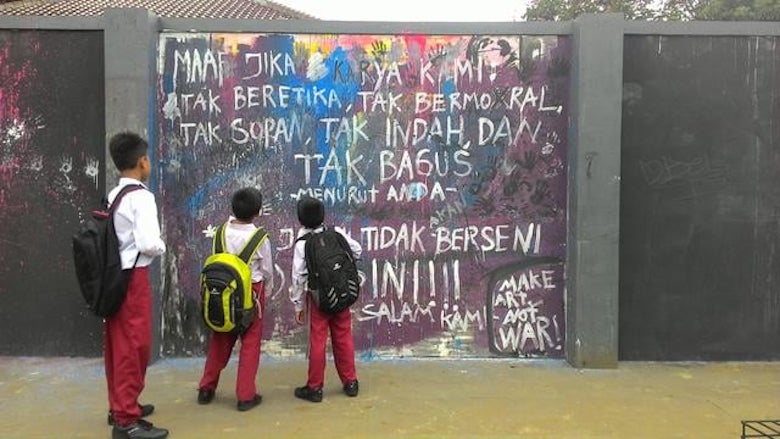 MAAF JIKA KARYA KAMI:
TAK BERETIKA, TAK BERMORAL,
TAK SOPAN, TAK INDAH, DAN
TAK BAGUS,
-MENURUT ANDA-
TIDAK BERSENI
SINI!!!!
SALAM KAMI
MAKE
ART
NOT
WAR!